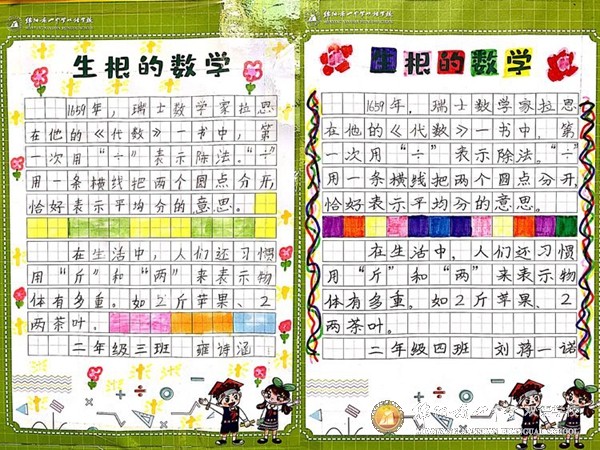 生根的数学
1659年,瑞士数学家拉恩
在他的《代数》一书中,第
一次用“÷”表示除法。“÷”
用一条横线把两个圆点分开,
恰好表示平均分的意思。
在生活中,人们还习惯
用“斤”和“两”来表示物
体有多重。如2斤苹果、2
两茶叶。
二年级三班 雍诗涵
生根的数学
1659年,瑞士数学家拉恩
在他的《代数》一书中,第
一次用“÷”表示除法。“÷”
用一条横线把两个圆点分开,
恰好表示平均分的意思。
在生活中,人们还习惯
用“斤”和“两”来表示物
体有多重。如2斤苹果、2
两茶叶。
二年级四班 刘蒋一诺